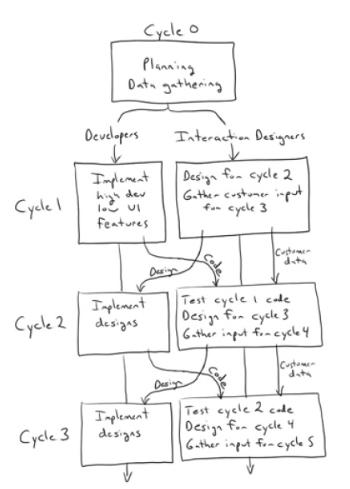 Cycle 0
Planning
Data gathering
Developers
Interaction Designers
Cycle 1
Implement
high dev
low UI
features
Design for cycle 2
Gather customer input
for cycle 3
Design
Code
Customer
data
Cycle 2
Implement
designs
Test cycle 1 code
Design for cycle 3
Gather input for cycle 4
Design
Code
Customer
data
Cycle 3
Implement
designs
Test cycle 2 code
Design for cycle 4
Gather input for cycle 5